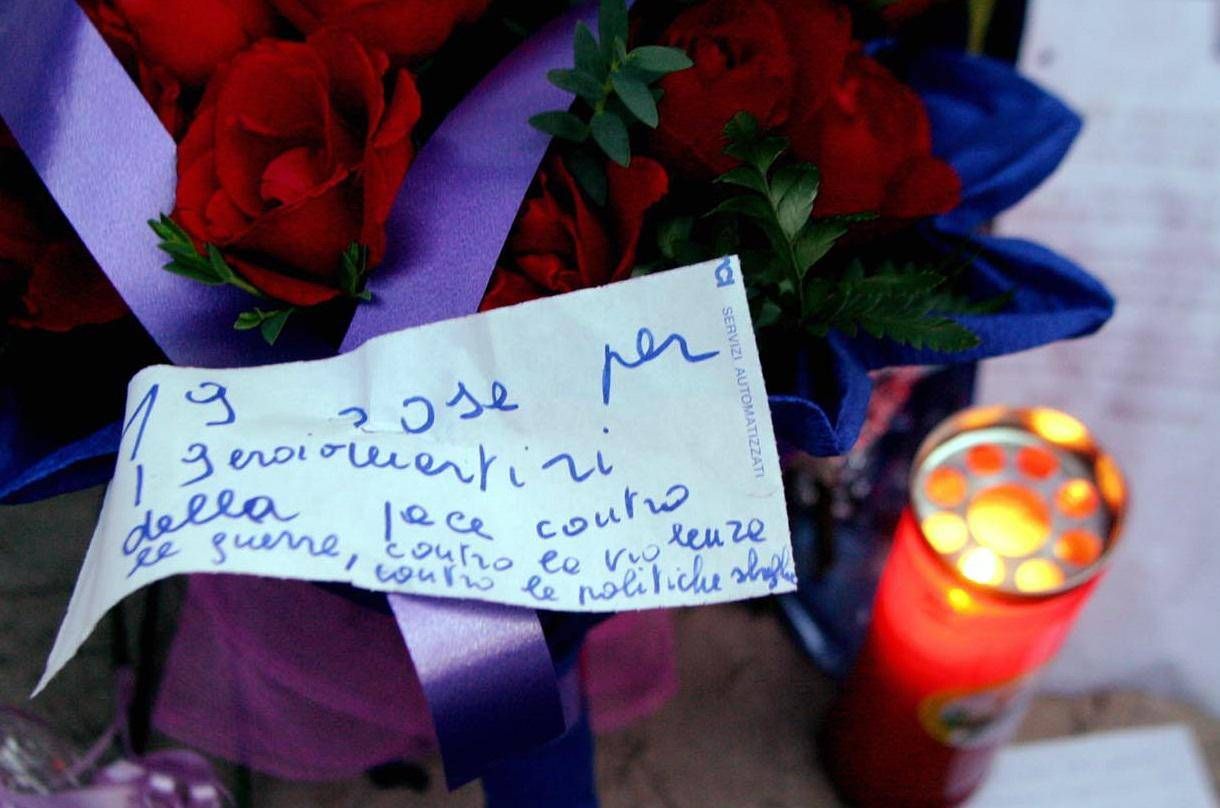 19 rose per
i 9 eroi o martiri
della pace contro
le guerre, contro la violenza
contro le politiche sbagli
SERVIZI AUTOMATIZZATI